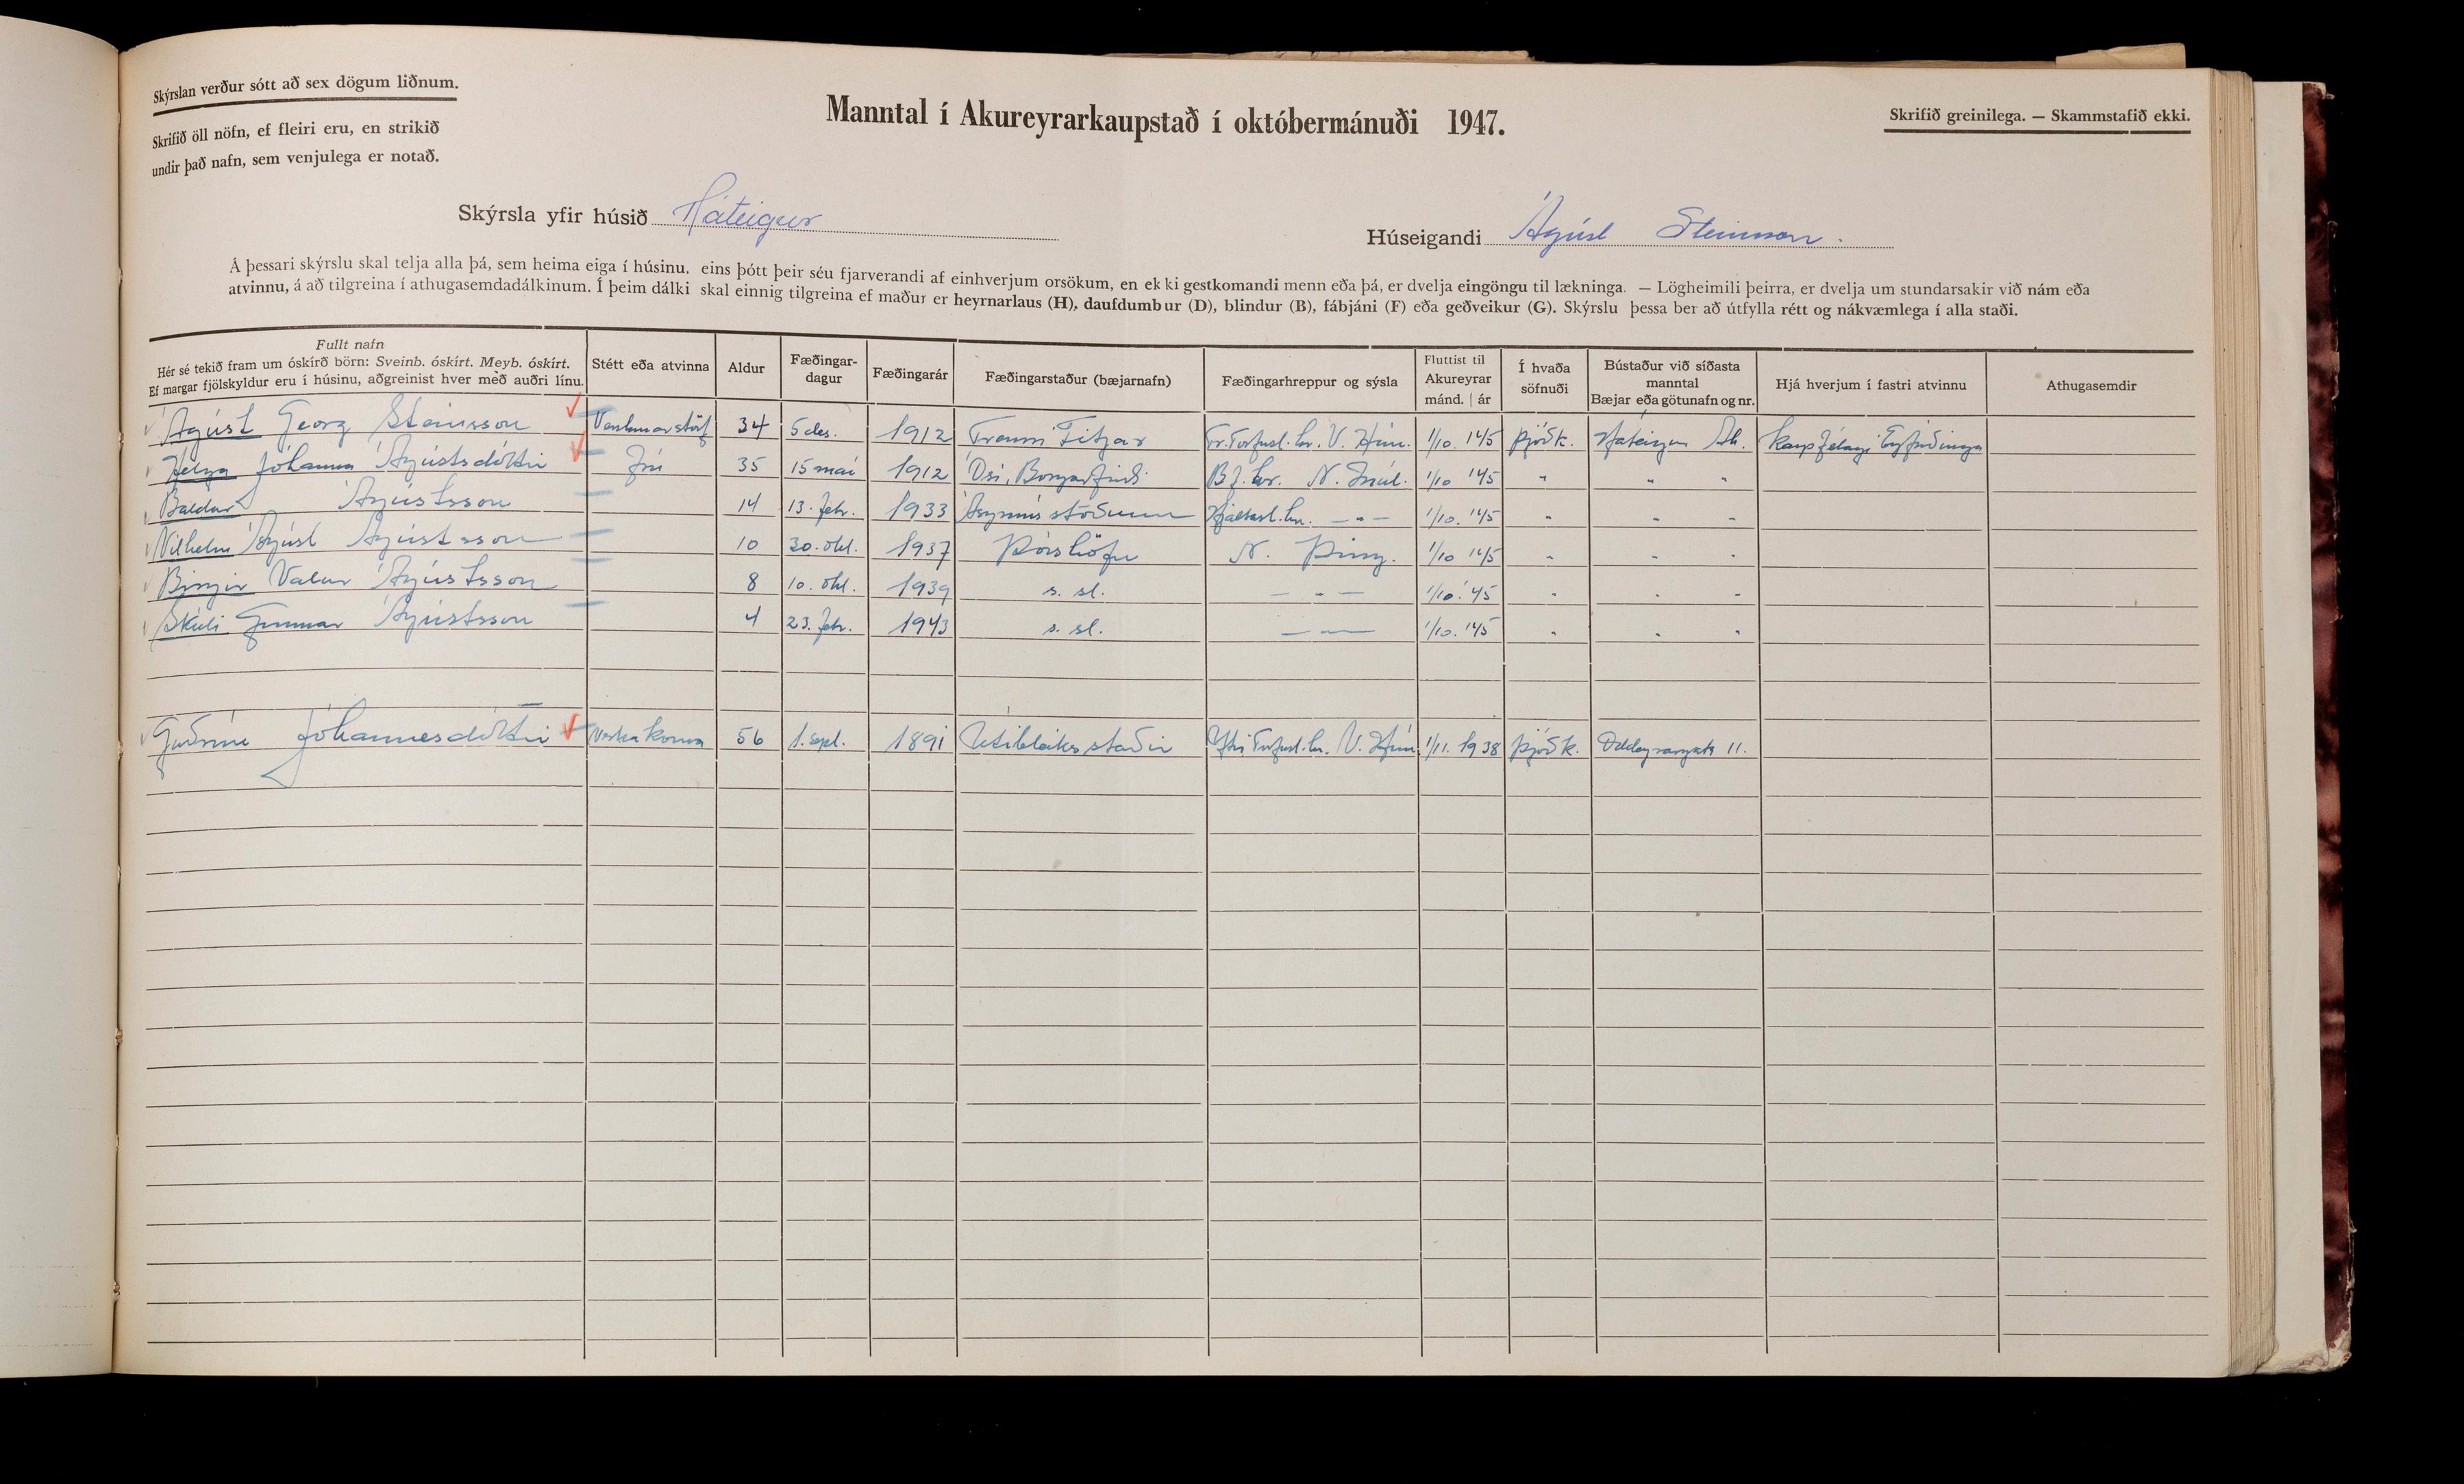 Skýrslan verður sótt að sex dögum liðnum.
Skrifið öll nöfn, ef fleiri eru, en strikið
undir það nafn, sem venjulega er notað.
Manntal í Akureyrarkaupstað í októbermánuði 1947.
Skrifið greinilega. — Skammstafið ekki.
Skýrsla yfir húsið Háteigur
Húseigandi Ágúst Steinsson.
Á þessari skýrslu skal telja alla þá, sem heima eiga í húsinu, eins þótt þeir séu fjarverandi af einhverjum orsökum, en ekki gestkomandi menn eða þá, er dvelja eingöngu til lækninga. — Lögheimili þeirra, er dvelja um stundarsakir við nám eða
atvinnu, á að tilgreina í athugasemdadálkinum. Í þeim dálki skal einnig tilgreina ef maður er heyrnarlaus (H), daufdumbur (D), blindur (B), fábjáni (F) eða geðveikur (G). Skýrslu þessa ber að útfylla rétt og nákvæmlega í alla staði.
Fullt nafn
Hér sé tekið fram um óskírð börn: Sveinb. óskírt. Meyb. óskírt.
Ef margar fjölskyldur eru í húsinu, aðgreinist hver með auðri línu.
Stétt eða atvinna
Aldur
Fæðingar-
dagur
Fæðingarár
Fæðingarstaður (bæjarnafn)
Fæðingarhreppur og sýsla
Fluttist til
Akureyrar
mánd. | ár
Í hvaða
söfnuði
Bústaður við síðasta
manntal
Bæjar eða götunafn og nr.
Hjá hverjum í fastri atvinnu
Athugasemdir
Ágúst Georg Steinsson Verslunarstörf 34 5 des. 1912 Fremri Fitjar Fr. Torfust. hr. V. Hún. 1/10. '45 Þjóðk. Háteigur Ak. Kaupfélagi Eyfirðinga
Helga Jóhanna Ágústsdóttir Frú 35 15 maí 1912 Ósi, Borgarfirði Bf. hr. N. Múl. 1/10 '45 " " "
Baldur Ágústsson 14 13. febr. 1933 Ásgrímsstöðum Hjaltast. hr. — " — 1/10. '45 " " "
Vilhelm Ágúst Ágústsson 10 30. okt. 1937 Þórshöfn N. Þing. 1/10 '45 " " "
Birgir Valur Ágústsson 8 10. okt. 1939 s. st. — " — 1/10. '45 " " "
Skúli Gunnar Ágústsson 4 23. febr. 1943 s. st. — " — 1/10. '45 " " "
Guðrún Jóhannesdóttir Verkakona 56 1. sept. 1891 Útibleiksstaðir Ytri Torfust. hr. V. Hún 1/11. 1938 Þjóðk. Oddeyrargata 11.